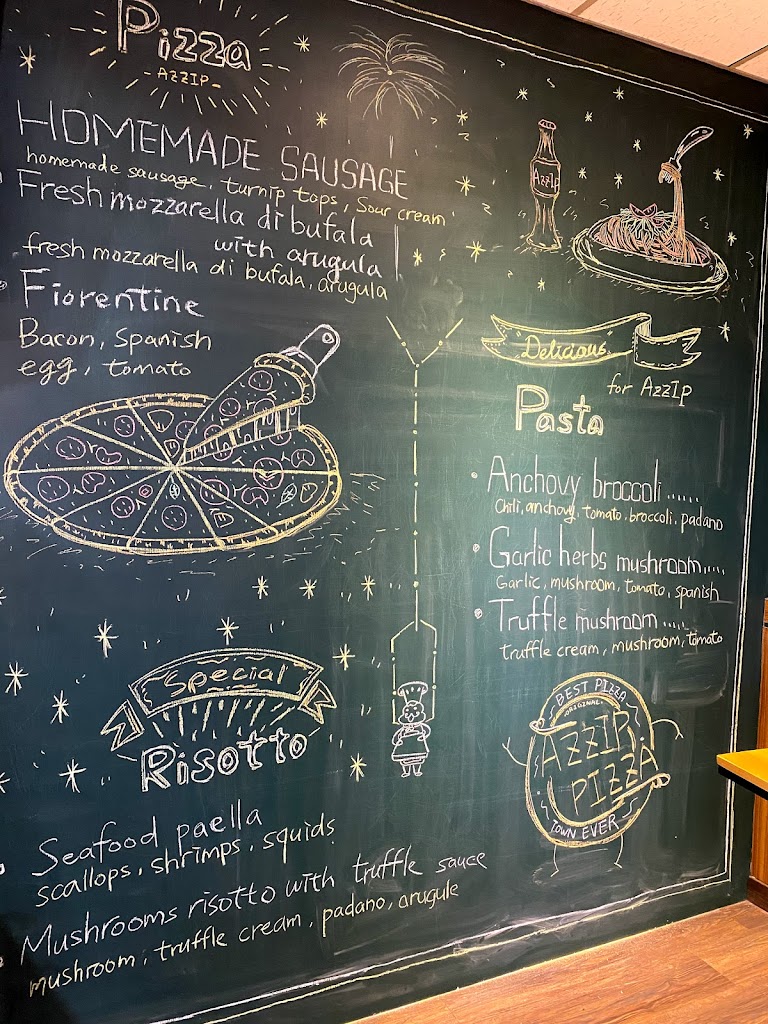 Pizza
- AZZIP -
HOMEMADE SAUSAGE
homemade sausage, turnip tops, sour cream
Fresh mozzarella di bufala
with arugula
fresh mozzarella di bufala, arugula
Fiorentine
Bacon, spanish
egg, tomato
AzzIP
Delicious
for AzzIP
Pasta
Anchovy broccoli .....
Chili, anchovy, tomato, broccoli, padano
Garlic herbs mushroom.....
Garlic, mushroom, tomato, spanish
Truffle mushroom .....
truffle cream, mushroom, tomato
Special
Risotto
Seafood paella
scallops, shrimps, squids
Mushrooms risotto with truffle sauce
mushroom, truffle cream, padano, arugule
BEST PIZZA
ORIGINAL
AZZIP
PIZZA
TOWN EVER